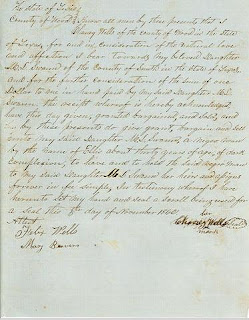 The State of Texas
County of Wood } Know all men by these presents that I
Wells of the county of Wood in the State
of Texas, for and in consideration of the natural love
and affection I bear towards my beloved Daughter
M. J. Swann of the County of Smith in the State of Texas
and for the further consideration of the sum of
Dollar to me in hand paid by my said Daughter M. J.
Swann, the receipt whereof is hereby acknowledged
have this day given, granted bargained, and sold, and
by these presents do give grant, bargain and sell
unto my said Daughter M. J. Swann, a negro
by the name of about thirty years of age, of dark
complexion, to have and to hold the said negro
to my said Daughter M. J. Swann her heirs and assigns
forever in fee simple, In testimony whereof I have
hereunto set my hand and seal a scroll being used for
a seal this 8th day of November 1860
her
Attest Wells
Felix Wells mark
Mary